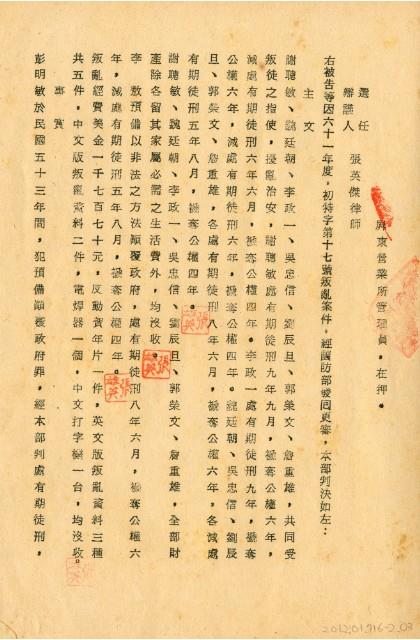 屏東營業所管理員，在押。
選任
辯護人 張英傑律師
右被告等因六十一年度，初特字第十七號叛亂案件，經國防部發回更審，本部判決如左：
主文
謝聰敏、魏廷朝、李政一、吳忠信、劉辰旦、郭榮文、詹重雄，共同受
叛徒之指使，擾亂治安，謝聰敏處有期徒刑九年九月，褫奪公權六年，
減處有期徒刑六年六月，褫奪公權四年。李政一處有期徒刑九年，褫奪
公權六年，減處有期徒刑六年，褫奪公權四年。魏廷朝、吳忠信、劉辰
旦、郭榮文、詹重雄，各處有期徒刑八年六月，褫奪公權六年，各減處
有期徒刑五年八月，褫奪公權四年。
謝聰敏、魏廷朝、李政一、吳忠信、劉辰旦、郭榮文、詹重雄，全部財
產除各留其家屬必需之生活費外，均沒收。
李敖預備以非法之方法顛覆政府，處有期徒刑八年六月，褫奪公權六
年，減處有期徒刑五年八月，褫奪公權四年。
叛亂經費美金一千七百七十元，反動賀年片一件，英文版叛亂資料三種
共五件，中文版叛亂資料二件，電焊器一個，中文打字機一台，均沒收。
事實
彭明敏於民國五十三年間，犯預備顛覆政府罪，經本部判處有期徒刑，
2012.01.716-2.03